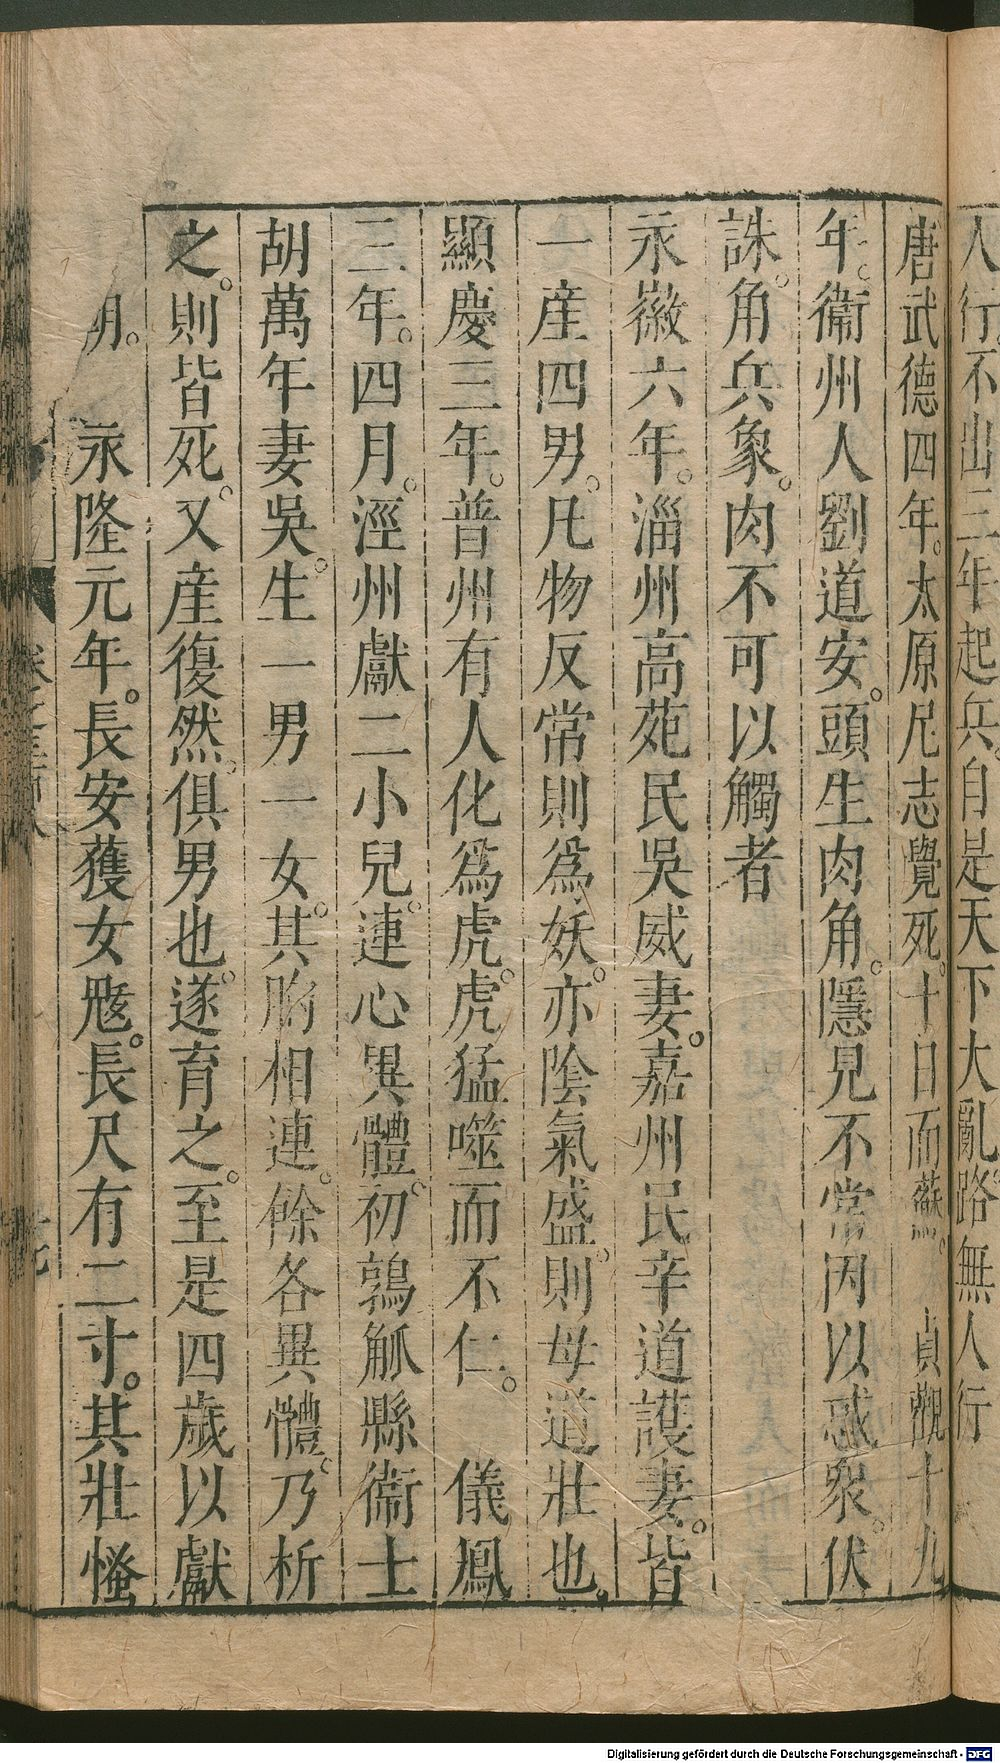 人行。不出三年起兵。自是天下大亂。路無人行
唐武德四年。太原尼志覺死。十日而蘇。 貞觀十九
年。衞州人劉道安。頭生肉角。隱見不常因以惑衆。伏
誅。角兵象。肉不可以觸者
永徽六年。淄州高苑民吳威妻。嘉州民辛道護妻。皆
一產四男。凡物反常則爲妖。亦陰氣盛。則母道壯也。
顯慶三年。普州有人化爲虎。虎猛噬而不仁。 儀鳳
三年。四月。涇州獻二小兒。連心異體。初鶉觚縣衞士
胡萬年妻吳。生一男一女。其胷相連。餘各異體。乃析
之。則皆死。又產復然。俱男也。遂育之。至是四歲以獻
朝。 永隆元年。長安獲女魃。長尺有二寸。其壯慅
Digitalisierung gefördert durch die Deutsche Forschungsgemeinschaft - DFG